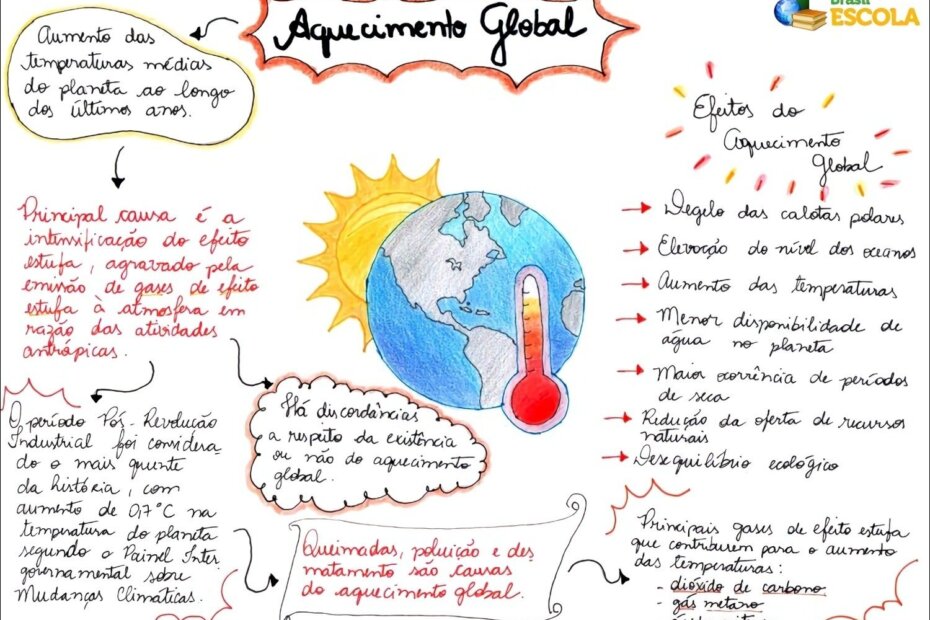 Aquecimento Global
Brasil
ESCOLA
Aumento das
temperaturas médias
do planeta ao longo
dos últimos anos.
Principal causa é a
intensificação do efeito
estufa, agravado pela
emissão de gases de efeito
estufa à atmosfera em
razão das atividades
antrópicas.
O período Pós-Revolução
Industrial foi considera
do o mais quente
da história, com
aumento de 0,7°C na
temperatura do planeta
segundo o Painel Inter
governamental sobre
Mudanças Climáticas.
Há discordâncias
a respeito da existência
ou não do aquecimento
global.
Queimadas, poluição e des
matamento são causas
do aquecimento global.
Efeitos do
Aquecimento
Global
Degelo das calotas polares
Elevação do nível dos oceanos
Aumento das temperaturas
Menor disponibilidade de
água no planeta
Maior ocorrência de períodos
de seca
Redução da oferta de recursos
naturais
Desequilíbrio ecológico
Principais gases de efeito estufa
que contribuem para o aumento
das temperaturas:
- dióxido de carbono
- gás metano